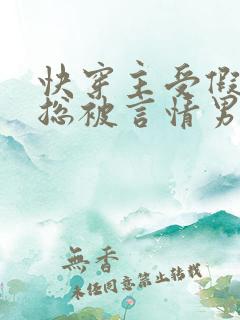 快穿主受假
总被言情男
無香
未经同意禁止转载